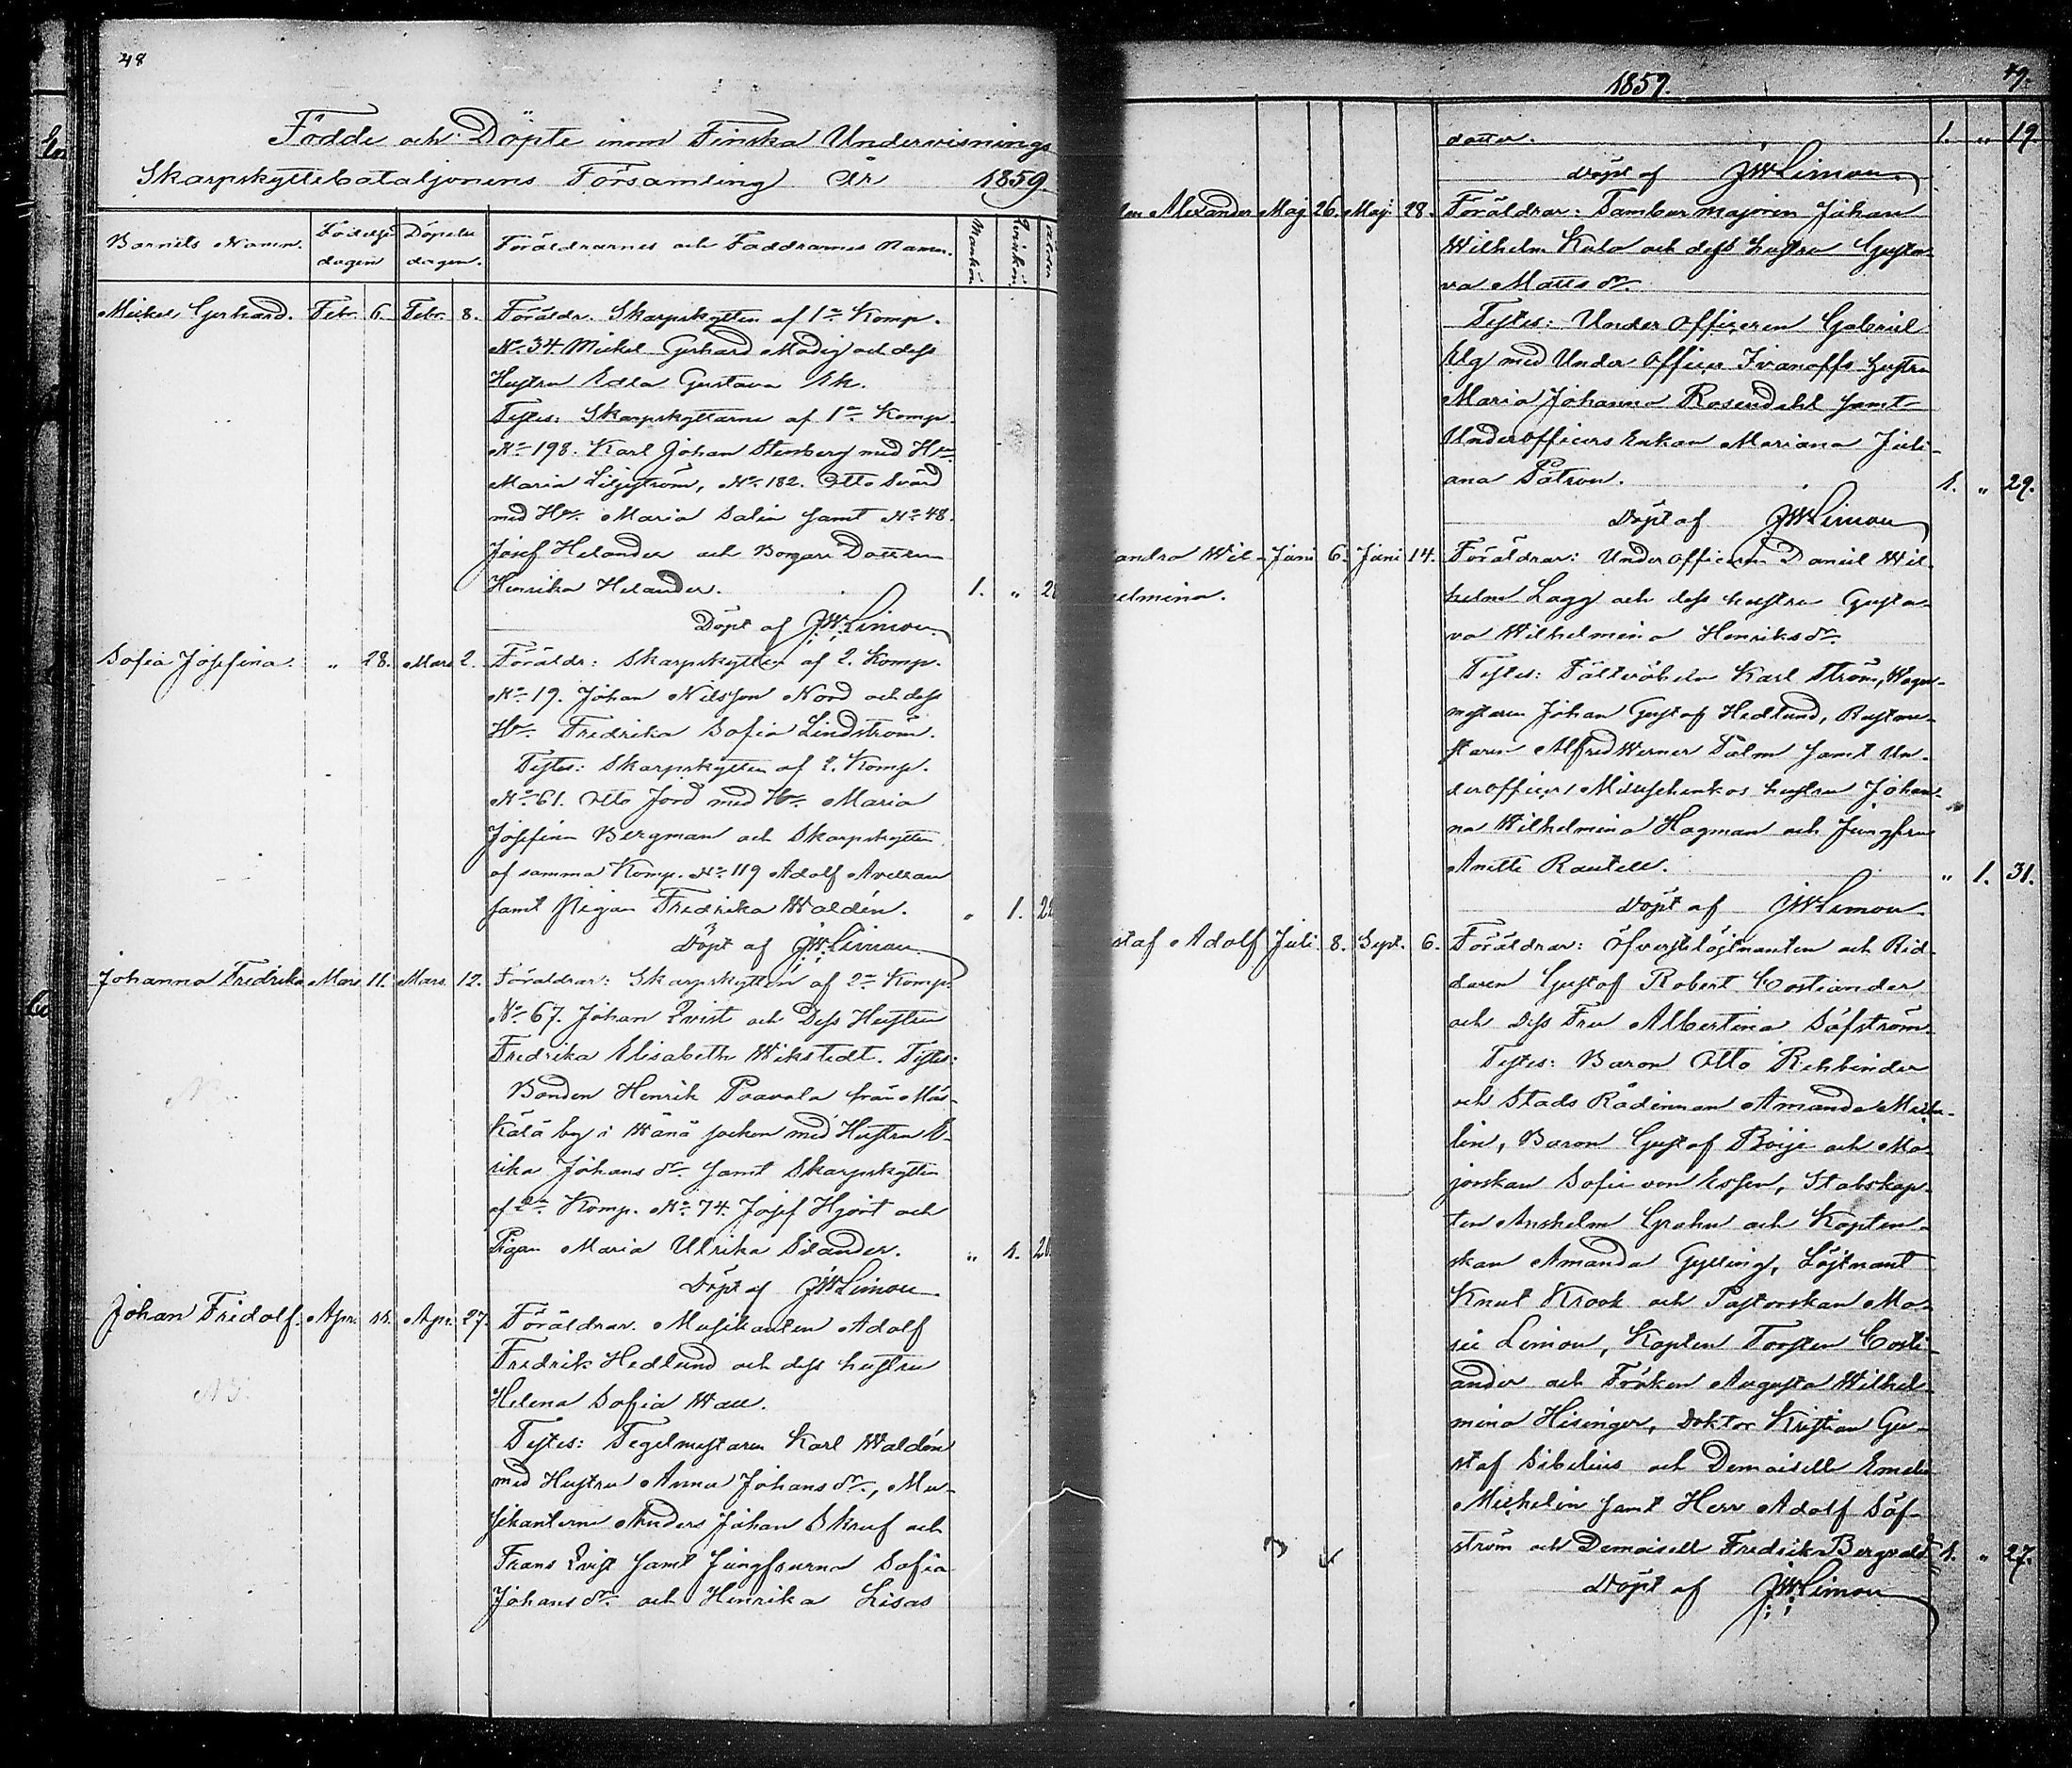 48
Födde och Döpte inom Finska Undervisnings
Skarpskyttebataljonens Församling År 1859
Barnets Namn. Födelse dagen Döpelse dagen. Föräldrarnes och Faddrarnes Namn. Mankön Qvinkön
Mickel Gerhard. Febr. 6. Febr. 8. Föräldr. Skarpskytten af 1a Komp.
No. 34 Mickel Gerhard Modig och dess
Hustru Edla Gustava Ek.
Testes: Skarpskyttarne af 1a Komp.
No 198. Karl Johan Stenberg med Hu.
Maria Liljeström, No. 182. Otto Svärd
med Hu. Maria Salin samt No 48.
Josef Helander och Borgare Dottren
Henrika Helander. 1. "
Döpt af J.W. Limon
Sofia Josefina. " 28. Mars 2. Föräldr: Skarpskytten af 2. Komp.
No 19. Johan Nilsson Nord och dess
Hu. Fredrika Sofia Lindström.
Testes: Skarpskytten af 2. Komp.
No 61. Otto Jord med Hu. Maria
Josefina Bergman och Skarpskytten
af samma Komp. No 119 Adolf Avellan
samt Pigan Fredrika Waldén. " 1.
Döpt af J.W. Limon
Johanna Fredrika Mars 11. Mars 12. Föräldrar: Skarpskytten af 2a Komp.
No 67. Johan Qvist och dess Hustru
Fredrika Elisabeth Wikstedt. Testes:
Bonden Henrik Paavola från Mäs-
kälä by i Wånå socken med Hustru E-
rika Johans dr samt Skarpskytten
af 2a Komp. No 74. Josef Hjort och
Pigan Maria Ulrika Silander. " 1.
Döpt af J.W. Limon
Johan Fridolf. Apr. 11. Apr. 27. Föräldrar. Musikanten Adolf
Fredrik Hedlund och dess hustru
Helena Sofia Wall.
Testes: Tegelmästaren Karl Waldén
med Hustru Anna Johans dr, Mu-
sikanterne Anders Johan Skruf och
Frans Qvist samt Jungfrurna Sofia
Johans dr och Henrika Lisas
1859. 49.
dotter. 1. " 19.
Döpt af J.W. Limon
Alexander Maj 26. Maj 28. Föräldrar: Tamburmajoren Johan
Wilhelm Kala och dess hustru Gusta-
va Matts dr
Testes: Under Officeren Gabriel
Elg med Under Officer Ivanoffs hustru
Maria Johanna Rosendahl samt
Underofficers Enkan Mariana Juli-
ana Patron. 1. " 29.
Döpt af J.W. Limon
andra Wil- Juni 6. Juni 14. Föräldrar: Under officeren Daniel Wil-
elmina. helm Lagg och dess hustru Gusta-
va Wilhelmina Henriks dr
Testes: Fältväbeln Karl Ström, Wagn-
mästaren Johan Gustaf Hedlund, Rustmä-
staren Alfred Werner Palm samt Un-
derofficer hustru Johan-
na Wilhelmina Hagman och Jungfru
Anette Rautell. " 1. 31.
Döpt af J.W. Limon
staf Adolf Juli 8. Sept. 6. Föräldrar: Öfverstelöjtnanten och Rid-
daren Gustaf Robert Costiander
och dess Fru Albertina Söfström
Testes: Baron Otto Rehbinder
och Stads Rådinnan Amanda Miche-
lin, Baron Gustaf Boije och Ma-
jorskan Sofie von Essen, Stabskap-
ten Anshelm Grahn och Kapten-
skan Amanda Gylling, Löjtnant
Knut Krook och Pastorskan Ma-
rie Limon, Kapten Torsten Costi-
ander och Fröken Augusta Wilhel-
mina Hisinger, Doktor Kristian Gu-
staf Sibelius och Demoisell Emelie
Michelin samt Herr Adolf Söf-
ström och Demoisell Fredrika Bergvald 1. " 27.
Döpt af J.W. Limon